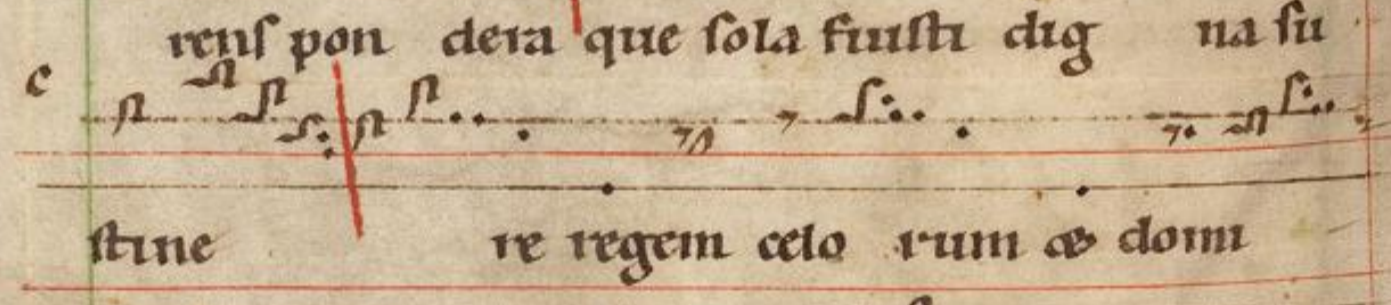 rens pon dera que sola fuisti dig na su
c
stine re regem celo rum & domi